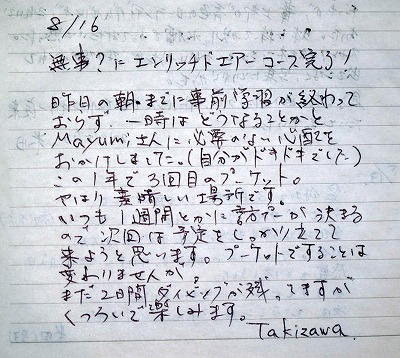 8/16
無事?にエンリッチドエアーコース完了!
昨日の朝までに事前学習が終わって
おらず、一時はどうなることかと
Mayumiさんに必要のない心配を
おかけしました。(自分がドキドキでした)
この1年で3回目のプーケット。
やはり素晴しい場所です。
いつも1週間とかに予定が決まる
ので次回は予定をしっかり立てて
来ようと思います。プーケットですることは
変わりませんが。
まだ2日間ダイビングが残ってますが
くつろいで楽しみます。
Takizawa.